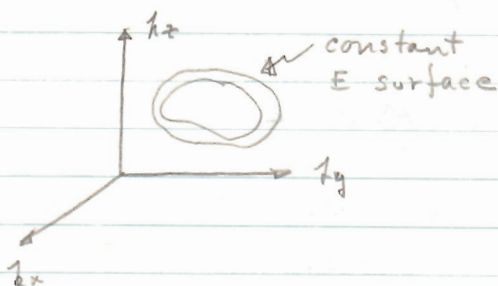 kz
constant
E surface
ky
kx